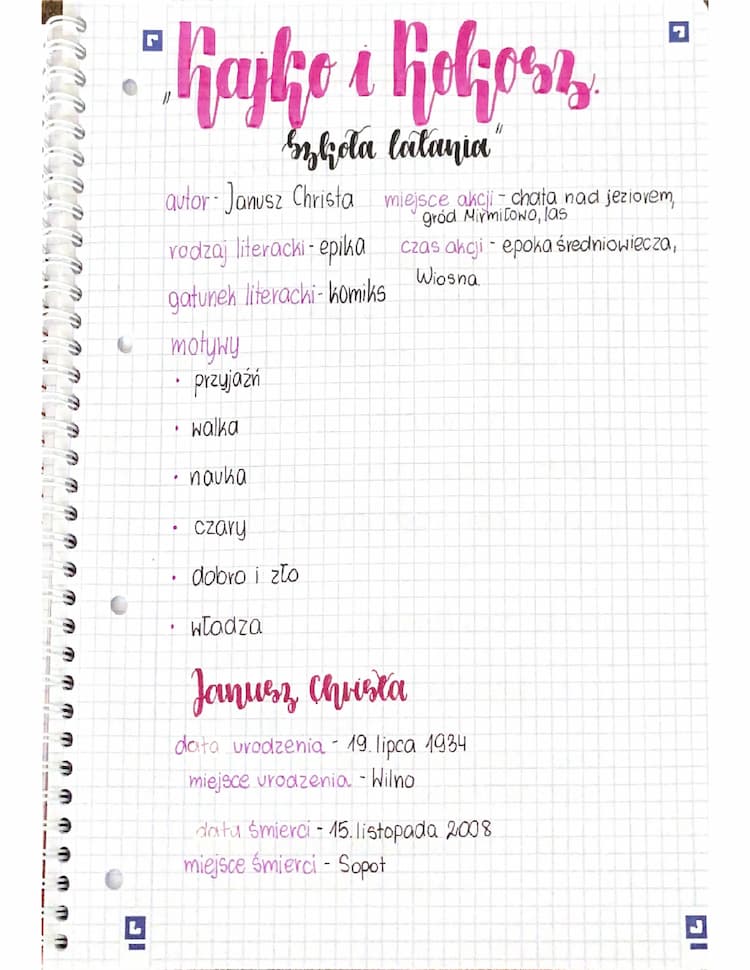 „Kajko i Kokosz.
Szkoła latania"
autor - Janusz Christa
rodzaj literacki - epika
gatunek literacki - komiks
miejsce akcji - chata nad jeziorem,
gród Mirmiłowo, las
czas akcji - epoka średniowiecza,
Wiosna.
motywy
• przyjaźń
• walka
• nauka
• czary
• dobro i zło
• władza
Janusz Christa
data urodzenia - 19. lipca 1934
miejsce urodzenia - Wilno
data śmierci - 15. listopada 2008
miejsce śmierci - Sopot